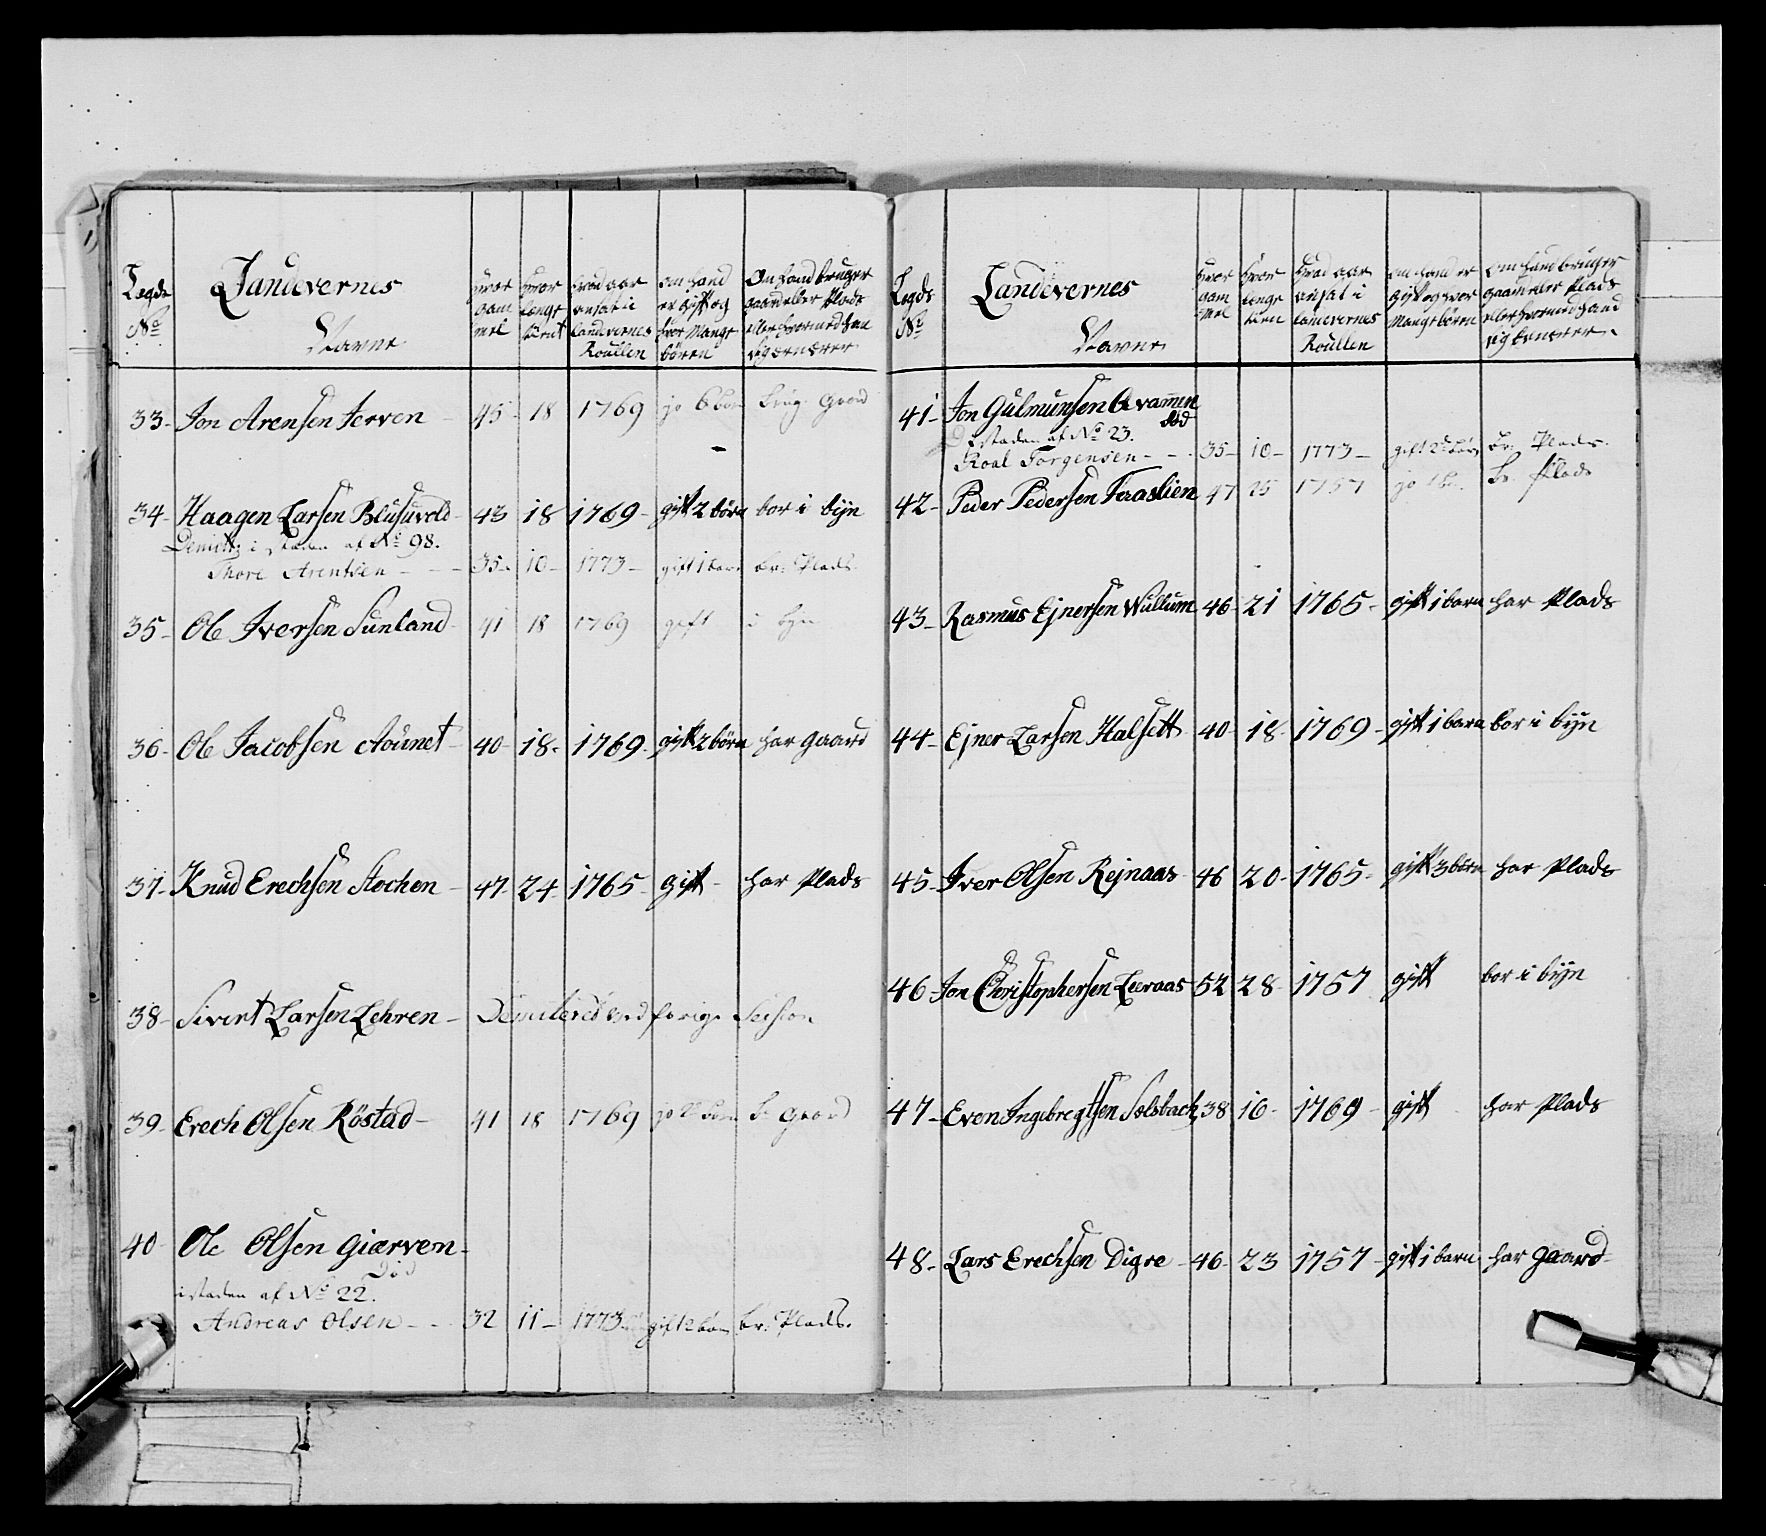 Legds No | Landevernes Navne | Hvor gam mel | Hvor længe tient | Hvad aar ansat i Landevernes Roullen | om hand er gift og hvor Mange börn | Om hand bruger gaard eller Plads eller hvormed han sig ernærer
33 - Jon Arensen Jerven - 45 - 18 1769 jo 6 börn brug. Gaard
34 - Haagen Larsen Blusuvold - 43 18 1769 - gift 2 börn bor i byn
i staden af No 98.
Thore Arentsen - - - 35 - 10 - 1773 - gift 1 barn br: Plads
35 - Ole Iversen Sunland - 41 18 1769 gift i byn
36 - Ole Jacobsen Aounet - 40 - 18 - 1769 - gift 2 börn har gaard
37 - Knud Erechsen Stochen - 47 - 24 - 1765 - gift - har Plads
38 - Sivert Larsen Lehren - Demitered ved forige Sesion
39 - Erech Olsen Röstad - 41 18 1769 jo 2 börn br Gaard
40 - Ole Olsen Giærven -
död
i staden af No 22.
Andreas Olsen - - - 32 11 - 1773 - gift 2 börn br: Plads.
Legds No | Landevernes Navne | Hvor gam mel | Hvor længe tien | Hvad aar ansat i Landevernes Roullen | om hand er gift og hvor Mange börn | om hand bruger gaard eller Plads eller hvormed hand sig ernærer.
41 - Jon Gulmunsen Qvammen
död
I staden af No 23.
Roal Torgensen - - - 35 - 10 - 1773 - gift 2 börn br: Plads.
42 - Peder Pedersen Teraaslien 47 25 1757 jo 1 br. Plads
43 - Rasmus Ejnersen Wullum 46 - 21 1765 - gift 1 barn har Plads
44 - Ejner Larsen Halsett 40 - 18 - 1769 - gift 1 barn bor i byn
45 - Iver Olsen Rejnaas 46 20 - 1765 - gift 3 börn har Plads
46 - Jon Christophersen Leeraas 52 28 - 1757 gift bor i byn
47 - Even Ingebregtsen Solsbach 38 16 - 1769 - gift har Plads
48 - Lars Erechsen Digre - 46 - 23 1757 - gift 1 barn har gaard -